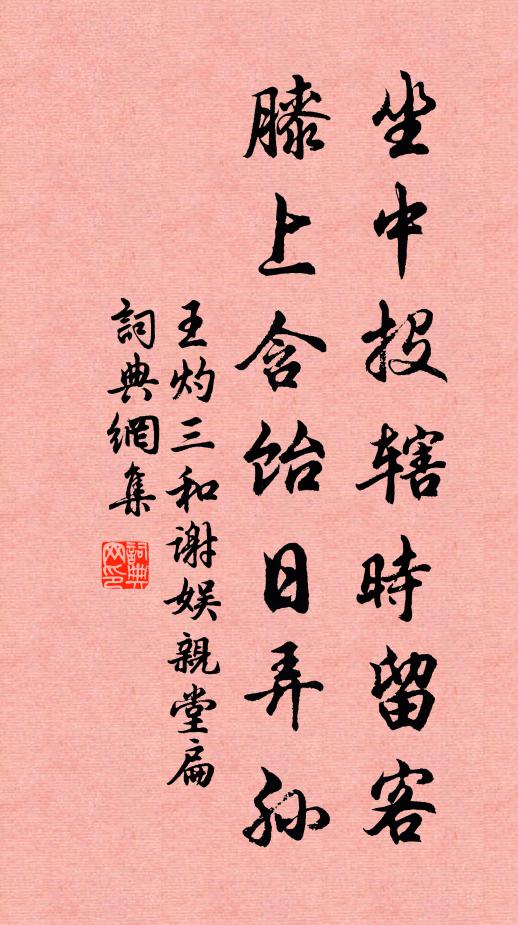 坐中投辖時留客
膝上含饴日弄孙
王灼三和谢娱親堂扁
詞典網集
詞典网印